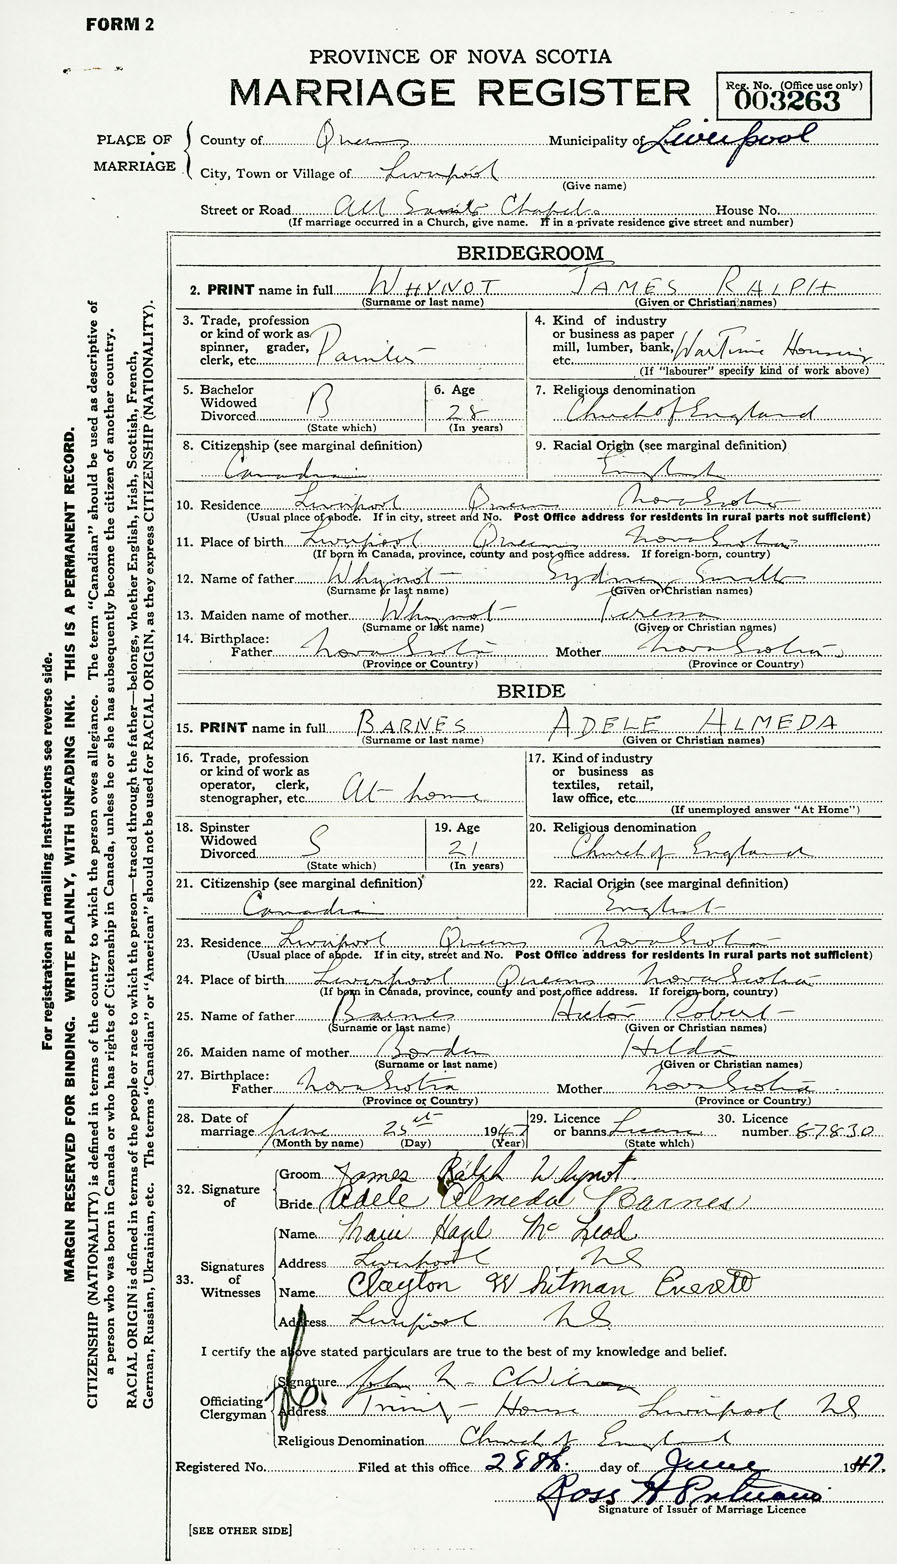 FORM 2
PROVINCE OF NOVA SCOTIA
MARRIAGE REGISTER
Reg. No. (Office use only)
003263
PLACE OF MARRIAGE
County of Queens Municipality of Liverpool
City, Town or Village of Liverpool
(Give name)
Street or Road All Saints Chapel House No.
(If marriage occurred in a Church, give name. If in a private residence give street and number)
BRIDEGROOM
2. PRINT name in full WHYNOT JAMES RALPH
(Surname or last name) (Given or Christian names)
3. Trade, profession or kind of work as spinner, grader, clerk, etc. Painter
4. Kind of industry or business as paper mill, lumber, bank, etc. WarTime Housing
(If "labourer" specify kind of work above)
5. Bachelor Widowed Divorced B
(State which)
6. Age 28
(In years)
7. Religious denomination
Church of England
8. Citizenship (see marginal definition)
Canadian
9. Racial Origin (see marginal definition)
English
10. Residence Liverpool Queens Nova Scotia
(Usual place of abode. If in city, street and No. Post Office address for residents in rural parts not sufficient)
11. Place of birth Liverpool Queens Nova Scotia
(If born in Canada, province, county and post office address. If foreign-born, country)
12. Name of father Whynot Sydney Smith
(Surname or last name) (Given or Christian names)
13. Maiden name of mother Whynot Teressa
(Surname or last name) (Given or Christian names)
14. Birthplace:
Father Nova Scotia Mother Nova Scotia
(Province or Country) (Province or Country)
BRIDE
15. PRINT name in full BARNES ADELE ALMEDA
(Surname or last name) (Given or Christian names)
16. Trade, profession or kind of work as operator, clerk, stenographer, etc. At home
17. Kind of industry or business as textiles, retail, law office, etc.
(If unemployed answer "At Home")
18. Spinster Widowed Divorced S
(State which)
19. Age 21
(In years)
20. Religious denomination
Church of England
21. Citizenship (see marginal definition)
Canadian
22. Racial Origin (see marginal definition)
English
23. Residence Liverpool Queens Nova Scotia
(Usual place of abode. If in city, street and No. Post Office address for residents in rural parts not sufficient)
24. Place of birth Liverpool Queens Nova Scotia
(If born in Canada, province, county and post office address. If foreign-born, country)
25. Name of father Barnes Robert
(Surname or last name) (Given or Christian names)
26. Maiden name of mother Borden Hilda
(Surname or last name) (Given or Christian names)
27. Birthplace:
Father Nova Scotia Mother Nova Scotia
(Province or Country) (Province or Country)
28. Date of marriage June 25th 1947
(Month by name) (Day) (Year)
29. Licence or banns Licence
(State which)
30. Licence number 87830
32. Signature of
Groom James Ralph Whynot
Bride Adele Almeda Barnes
33. Signatures of Witnesses
Name Marie Hazel McLeod
Address Liverpool NS
Name Clayton Whitman Everett
Address Liverpool NS
I certify the above stated particulars are true to the best of my knowledge and belief.
Officiating Clergyman
Signature John
Address Trinity House Liverpool NS
Religious Denomination Church of England
Registered No. Filed at this office 28th day of June 1947.
Ross H
Signature of Issuer of Marriage Licence
[SEE OTHER SIDE]
For registration and mailing instructions see reverse side.
MARGIN RESERVED FOR BINDING. WRITE PLAINLY, WITH UNFADING INK. THIS IS A PERMANENT RECORD.
CITIZENSHIP (NATIONALITY) is defined in terms of the country to which the person owes allegiance. The term "Canadian" should be used as descriptive of
a person who was born in Canada or who has rights of Citizenship in Canada, unless he or she has subsequently become the citizen of another country.
RACIAL ORIGIN is defined in terms of the people or race to which the person—traced through the father—belongs, whether English, Irish, Scottish, French,
German, Russian, Ukrainian, etc. The terms "Canadian" or "American" should not be used for RACIAL ORIGIN, as they express CITIZENSHIP (NATIONALITY).